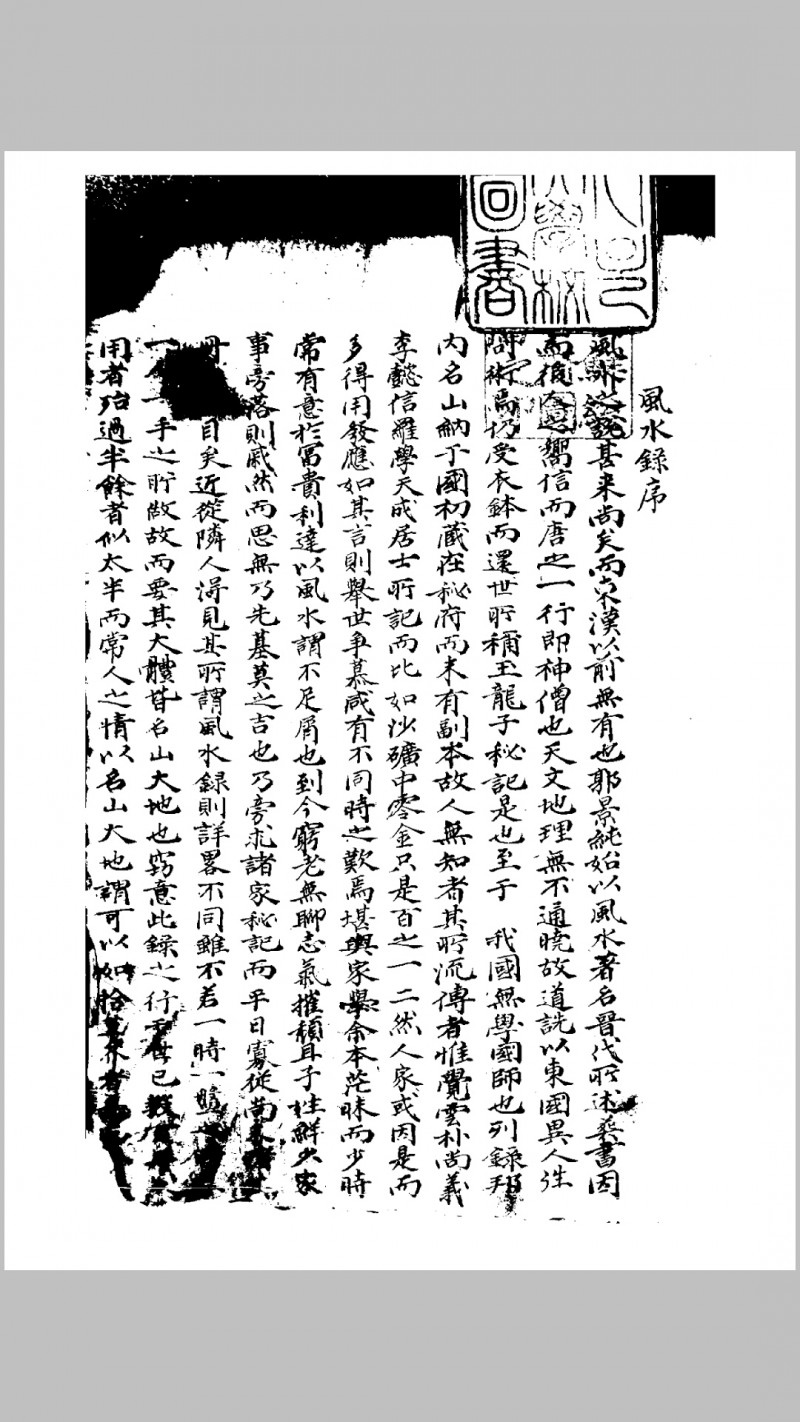 風水錄序
風水之說甚来尚矣而東漢以前無有也郭景純始以風水著名晋代所述葬書因
而後人之嚮信而唐之一行即神僧也天文地理無不通曉故道詵以東國異人徃
問術焉仍受衣鉢而還世所稱玉龍子秘記是也至于 我國無學國師也列錄邦
内名山納于國初藏在秘府而未有副本故人無知者其所流傳者惟覺雲朴尚義
李懿信羅學天成居士所記而比如沙礦中零金只是百之一二然人家或因是而
多得用發應如其言則舉世争慕咸有不同時之歎焉堪輿家學余本茫昧而少時
常有意於富貴利達以風水謂不足屑也到今窮老無聊志氣摧頹且子姓鮮少家
事旁落則戚然而思無乃先墓莫之吉也乃旁求諸家秘記而平日寡從尚
目矣近從隣人得見其所謂風水録則詳畧不同雖不若一時一
一手之所做故而要其大體皆名山大地也窃意此録之行于世已
用者殆過半餘者似太半而常人之情以名山大地謂可以如拾芥者